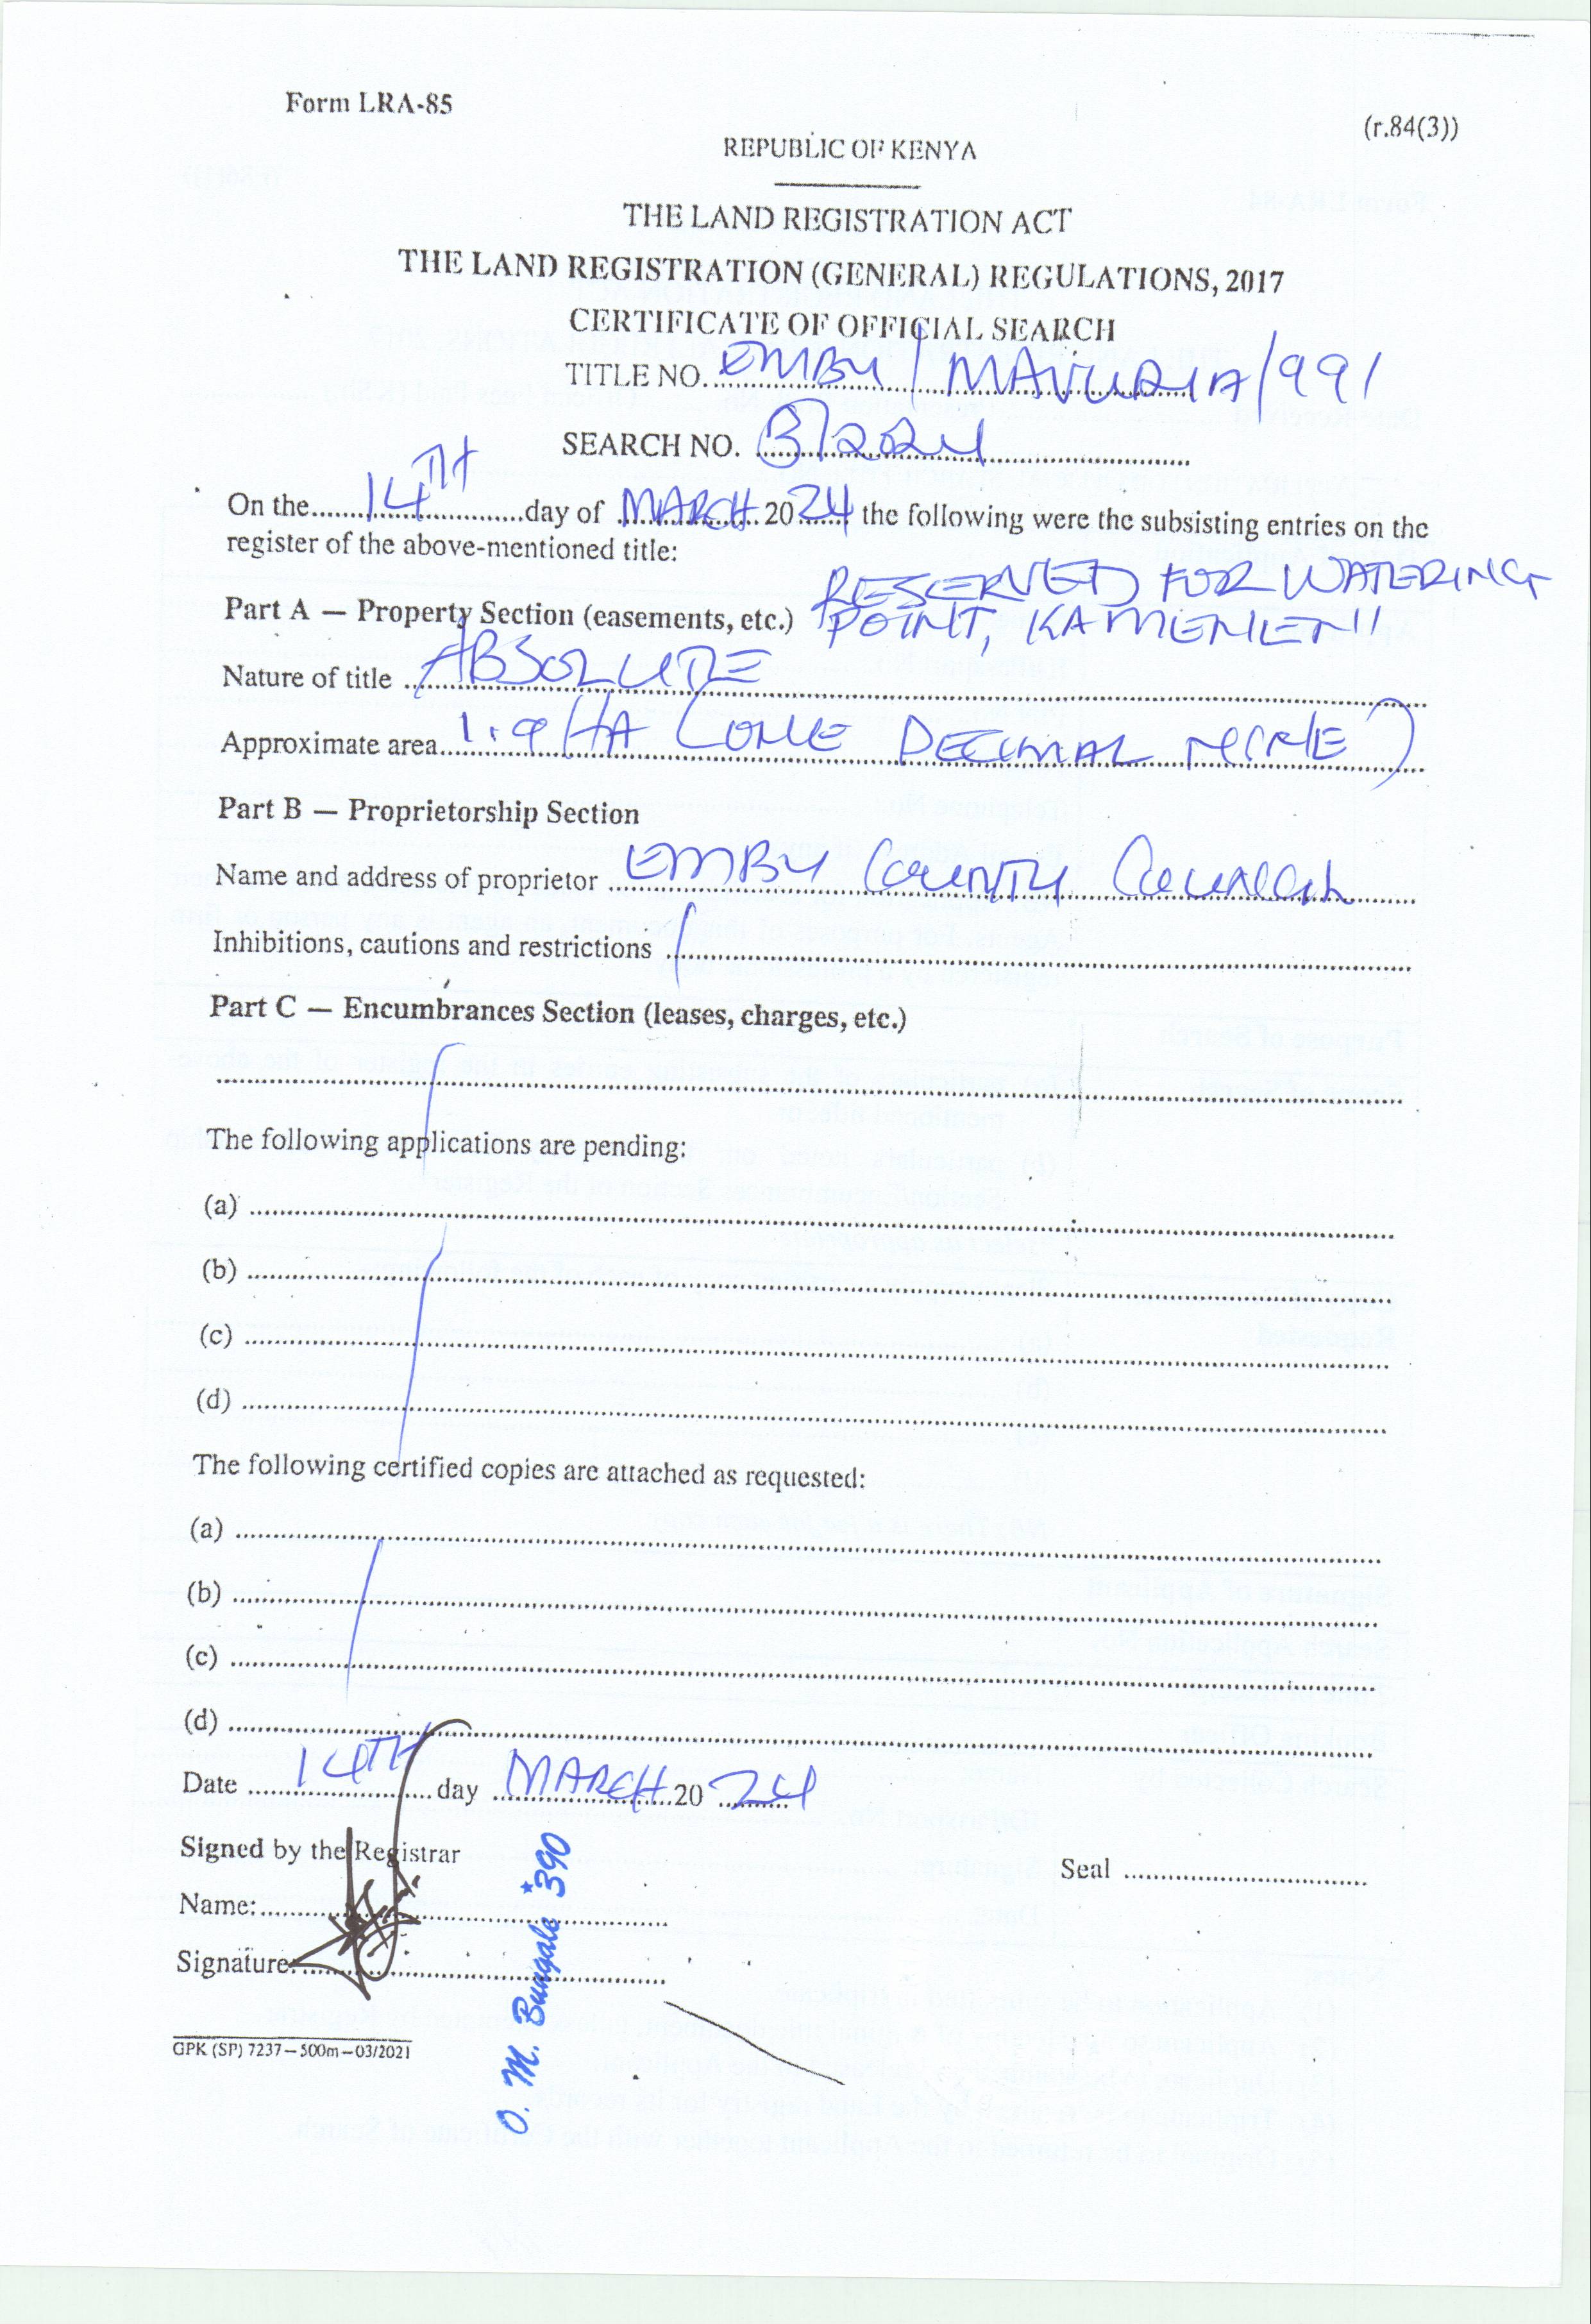 Form LRA-85
(r.84(3))
REPUBLIC OF KENYA
THE LAND REGISTRATION ACT
THE LAND REGISTRATION (GENERAL) REGULATIONS, 2017
CERTIFICATE OF OFFICIAL SEARCH
TITLE NO. EMBU / MAVURIA/991
SEARCH NO.
On the 14TH day of MARCH 2024 the following were the subsisting entries on the
register of the above-mentioned title:
RESERVED FOR WATERING
Part A — Property Section (easements, etc.) POINT,
Nature of title ABSOLUTE
Approximate area 1.9 HA (ONE DECIMAL NINE)
Part B — Proprietorship Section
Name and address of proprietor EMBU COUNTY COUNCIL
Inhibitions, cautions and restrictions
Part C — Encumbrances Section (leases, charges, etc.)
The following applications are pending:
(a)
(b)
(c)
(d)
The following certified copies are attached as requested:
(a)
(b)
(c)
(d)
Date 14TH day MARCH 2024
Signed by the Registrar
Seal
Name:
Signature:
O. M. Bungale *390
GPK (SP) 7237—500m—03/2021